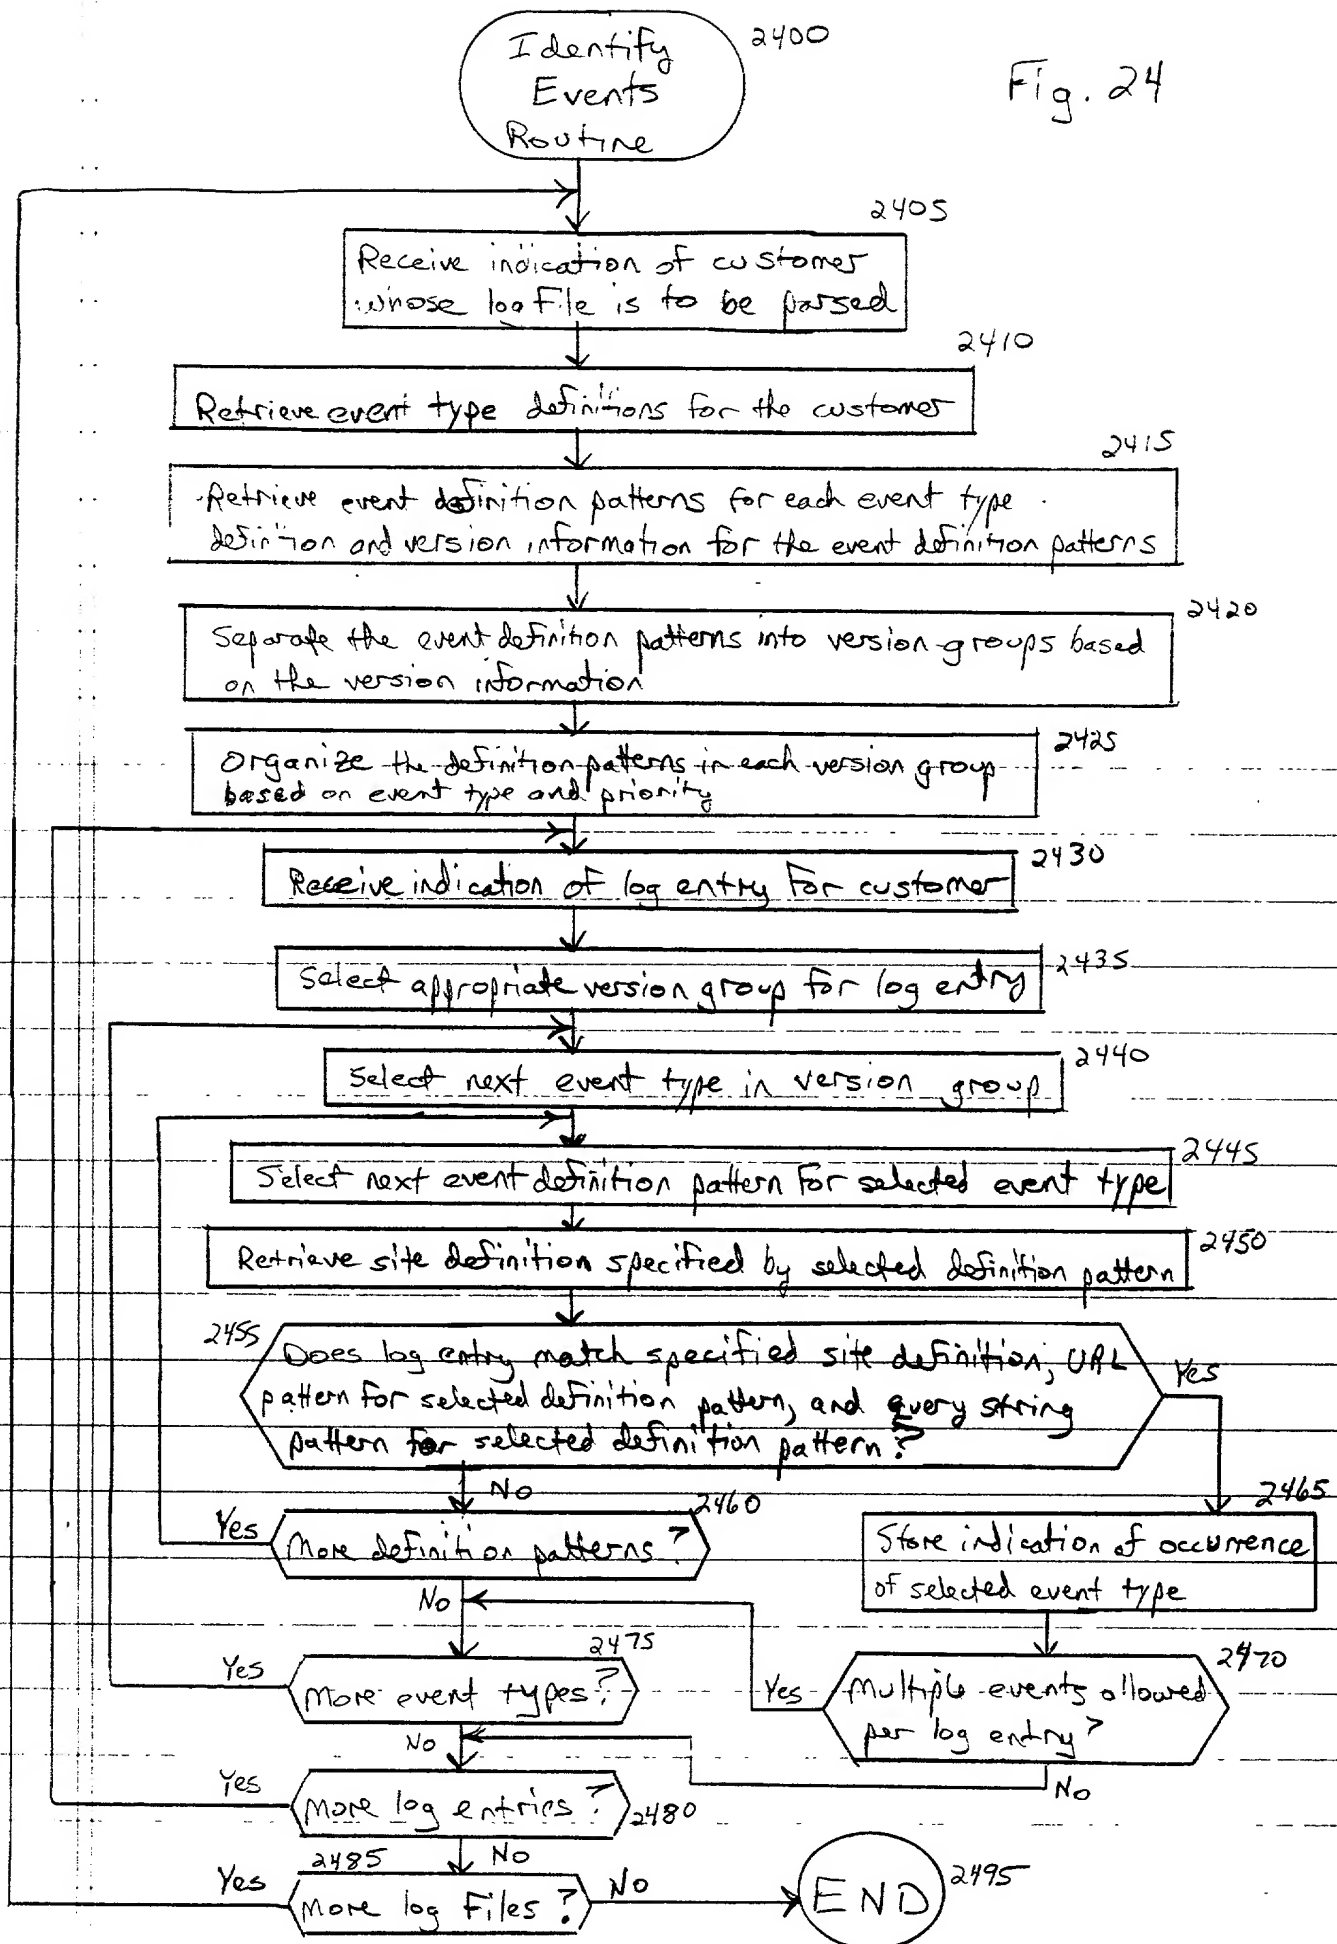 Identify
Events
Routine
2400
Fig. 24
2405
Receive indication of customer
whose log file is to be parsed
2410
Retrieve event type definitions for the customer
2415
Retrieve event definition patterns for each event type
definition and version information for the event definition patterns
2420
Separate the event definition patterns into version groups based
on the version information
2425
Organize the definition patterns in each version group
based on event type and priority
2430
Receive indication of log entry for customer
2435
Select appropriate version group for log entry
2440
Select next event type in version group
2445
Select next event definition pattern for selected event type
2450
Retrieve site definition specified by selected definition pattern
2455
Does log entry match specified site definition, URL
pattern for selected definition pattern, and query string
pattern for selected definition pattern?
Yes
No
2460
2465
Yes
More definition patterns?
Store indication of occurrence
of selected event type
No
2475
2470
Yes
More event types?
Yes
Multiple events allowed
per log entry?
No
No
Yes
More log entries?
2480
2485
No
Yes
More log files?
No
END
2495